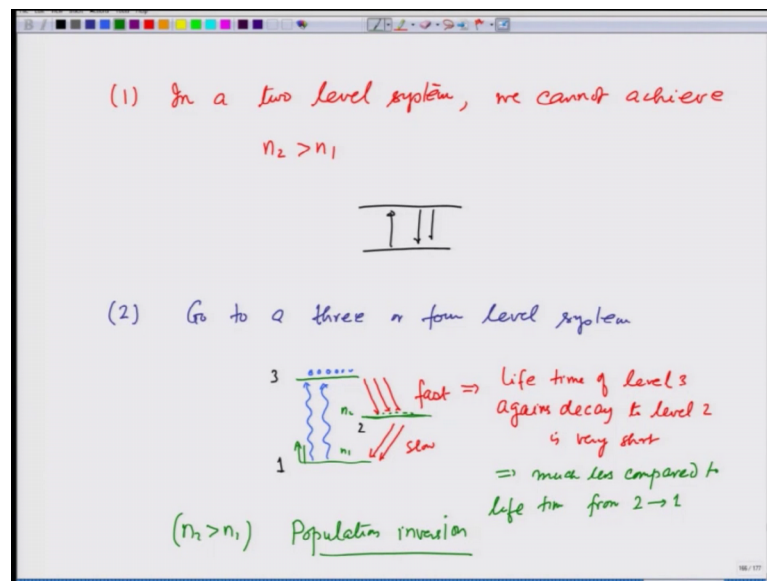 (1) In a two level system, we cannot achieve
n₂ > n₁
(2) Go to a three or four level system
3
fast ⇒ Life time of level 3
agains decay to level 2
is very short
n₂
2
n₁
slow
1
⇒ much less compared to
life tim from 2 → 1
(n₂ > n₁) Population inversion
166 / 177